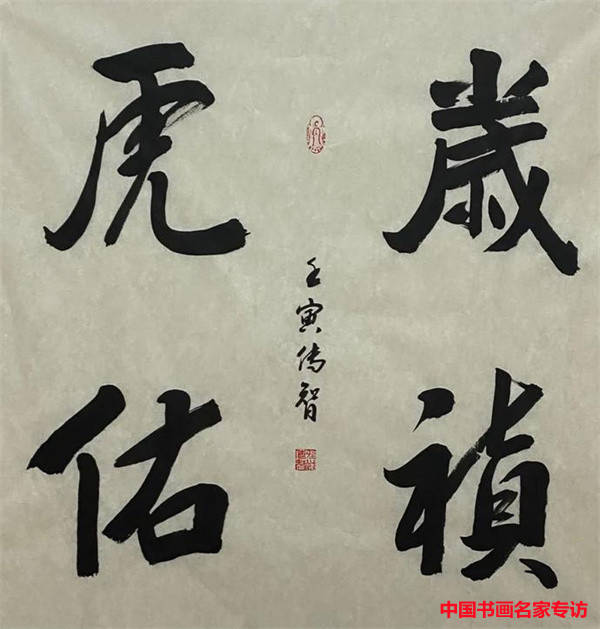 歲禎
虎佑
壬寅传智
中国书画名家专访